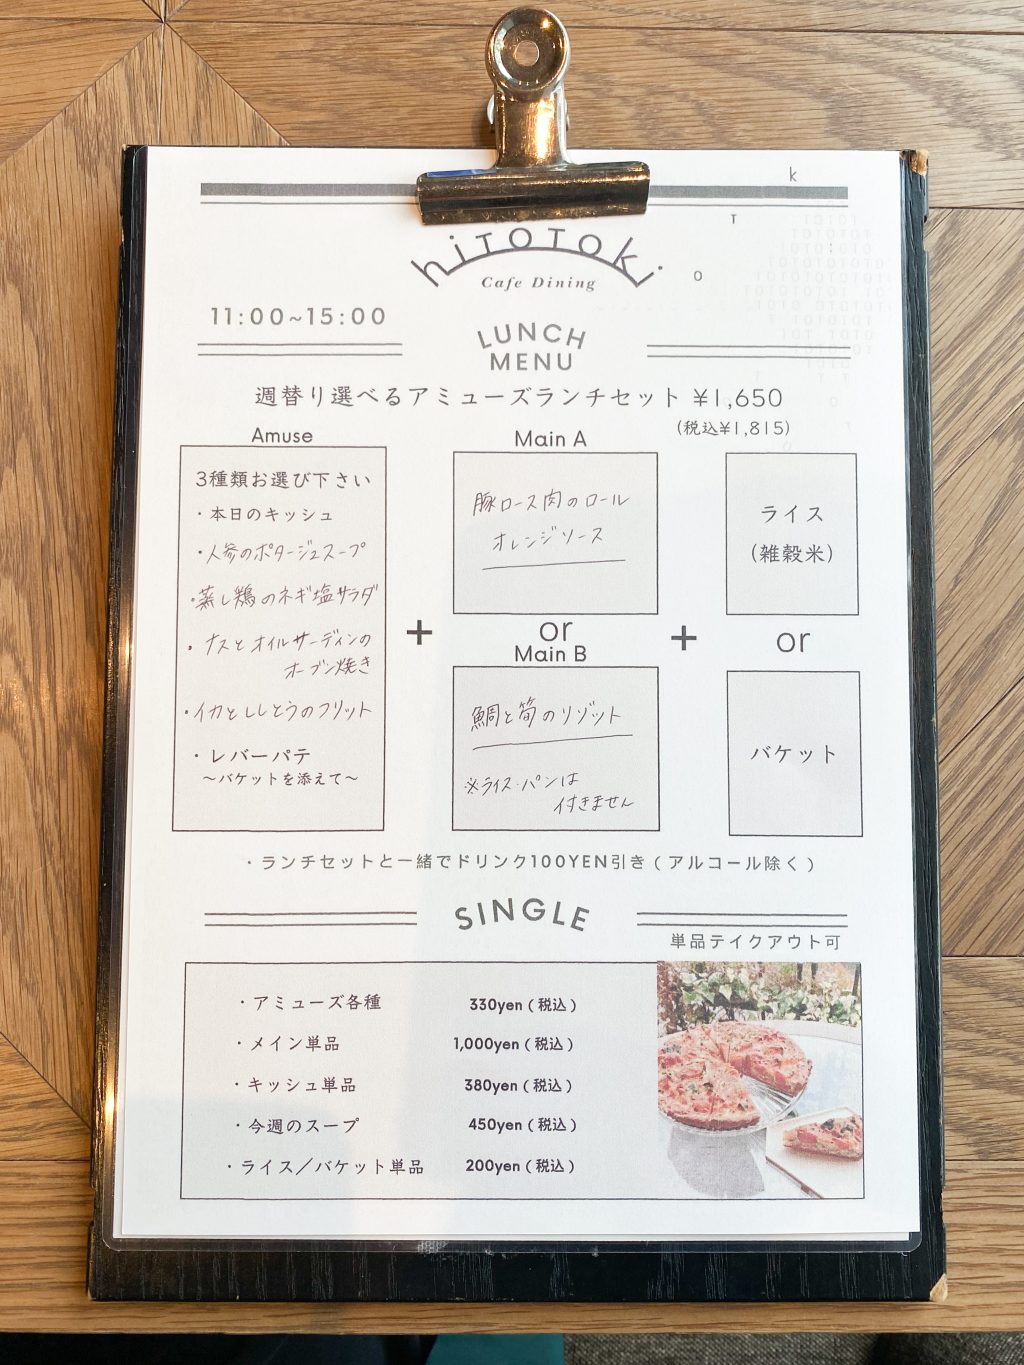 hiTOTOki
Cafe Dining
k
T
o
11:00~15:00
LUNCH
MENU
週替り選べるアミューズランチセット ¥1,650
(税込¥1,815)
Amuse
3種類お選び下さい
・本日のキッシュ
・人参のポタージュスープ
・蒸し鶏のネギ塩サラダ
・ナスとオイルサーディンの
オーブン焼き
・イカとししとうのフリット
・レバーパテ
～バケットを添えて～
+
Main A
豚ロース肉のロール
オレンジソース
or
Main B
鯛と筍のリゾット
※ライス・パンは
付きません
+
ライス
(雑穀米)
or
バケット
・ランチセットと一緒でドリンク100YEN引き(アルコール除く)
SINGLE
単品テイクアウト可
・アミューズ各種 330yen(税込)
・メイン単品 1,000yen(税込)
・キッシュ単品 380yen(税込)
・今週のスープ 450yen(税込)
・ライス/バケット単品 200yen(税込)